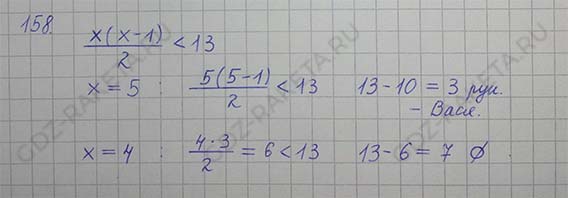 158.
x(x-1)/2 < 13
x = 5 : 5(5-1)/2 < 13 13-10 = 3 рук.
- Вася.
x = 4 : 4·3/2 = 6 < 13 13-6 = 7 ∅
GDZ-RAKETA.RU
GDZ-RAKETA.RU
GDZ-RAKETA.RU